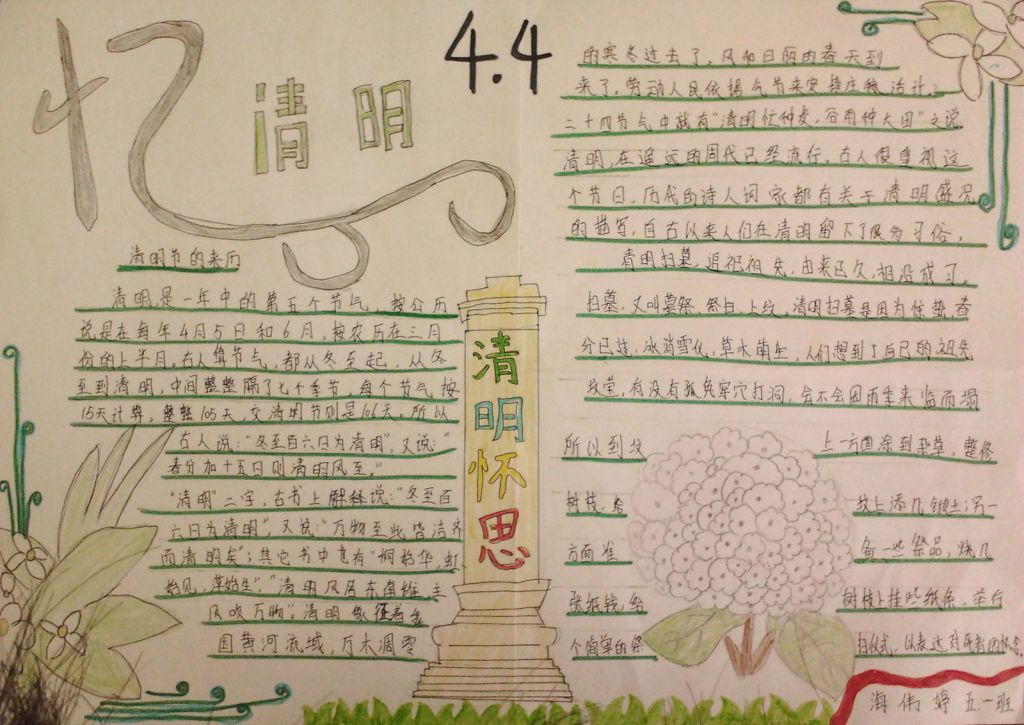 忆
清明
4.4
清明节的来历
清明,是一年中的第五个节气,按公历
说是在每年4月5日和6月,按农历在三月
份的上半月。古人算节气,都从冬至起,从冬
至到清明,中间整整隔了七个季节,每个节气按
15天计算,整整105天,交清明节则是106天。所以
古人说:“冬至百六日为清明”,又说:“
春分加十五日则清明风至。”
“清明”二字,古书上解释说:“冬至百
六日为清明”,又说:“万物至此皆洁齐
而清明矣”;其它书中更有“桐始华,虹
始见,萍始生”,“清明风居东南维,主
风吹万物”。清明象征着
国黄河流域,万木凋零
清明怀思
的寒冬过去了,风和日丽的春天到
来了。劳动人民依据气节来安排庄稼活计。
二十四节气中就有“清明忙种麦,谷雨种大田”之说
清明,在遥远的周代已经流行。古人很重视这
个节日,历代的诗人词家都有关于清明盛况
的描写,自古以来人们在清明留下了很多习俗。
清明扫墓,追祀祖先,由来已久,相沿成习。
扫墓,又叫墓祭、祭白、上坟,清明扫墓是因为惊蛰、春
分已过,冰消雪化,草木萌生,人们想到了自己的祖先
坟茔,有没有狐兔穿穴打洞,会不会因雨季来临而塌
所以到坟 上一方面除到杂草,整修
树枝,给 坟上添几锹土;另一
方面准 备一些祭品,烧几
张纸钱,给 树枝上挂些纸条,举行
个简单的祭 扫仪式,以表达对死者的怀念。
海伟婷 五.一班